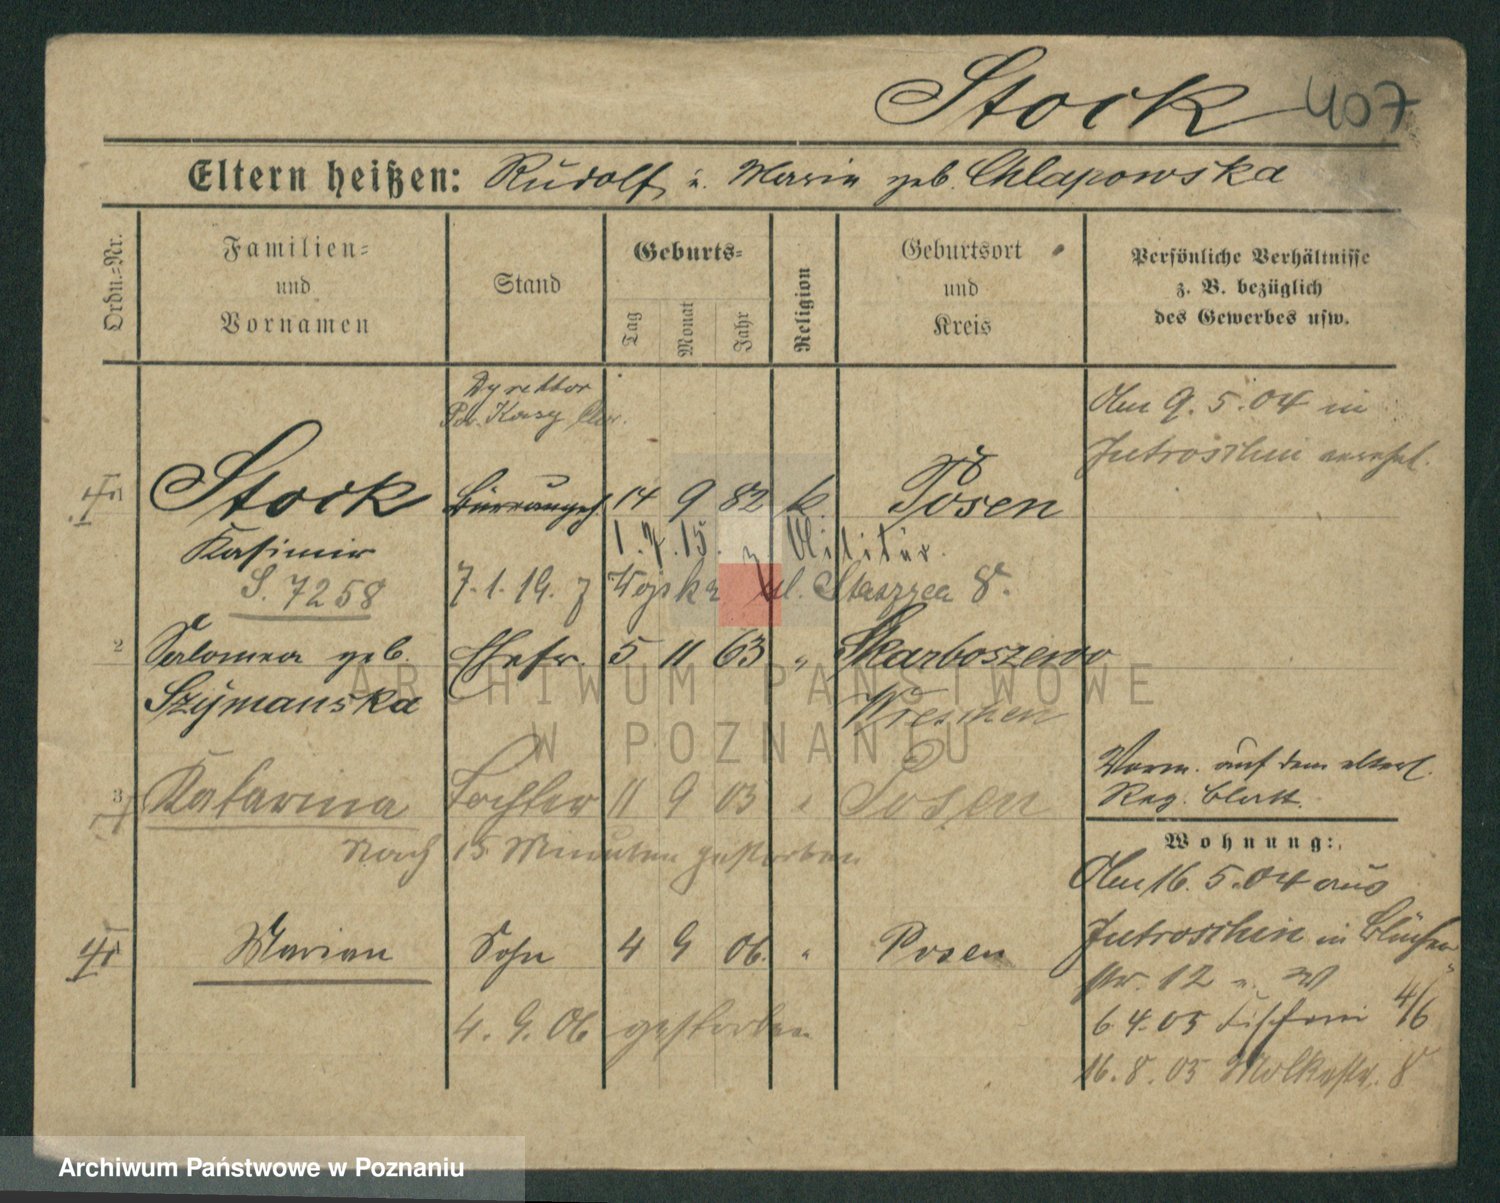 Stock 407
Eltern heißen: Rudolf u. Maria geb. Chlapowska
Ordn.=Nr.
Familien=
und
Vornamen
Stand
Geburts=
Tag
Monat
Jahr
Religion
Geburtsort
und
Kreis
Persönliche Verhältnisse
z. B. bezüglich
des Gewerbes usw.
Dyrektor
Kasy
Am 9. 5. 04 in
Jutroschin verehel.
1 Stock Büroangeh. 14 9 82 k Posen
Kasimir 1.7.15. z. Militär.
S. 7258 7.1.19. z Wojska ul. Staszyca 8.
2 Salomea geb. Ehefr. 5 11 63 " Skarboszewo
Szÿmanska Wreschen
3 Katarina Tochter 11 9 03 " Posen
Nach 15 Minuten gestorben
Verm. auf dem elterl.
Reg. Blatt.
Wohnung:
Am 16. 5. 04 aus
Jutroschin in Blücher
str. 12
6.4.05 Fischerei 4/6
16.8.05 Molkestr. 8
Marian Sohn 4 9 06. " Posen
4. 9. 06 gestorben
ARCHIWUM PAŃSTWOWE
W POZNANIU
Archiwum Państwowe w Poznaniu